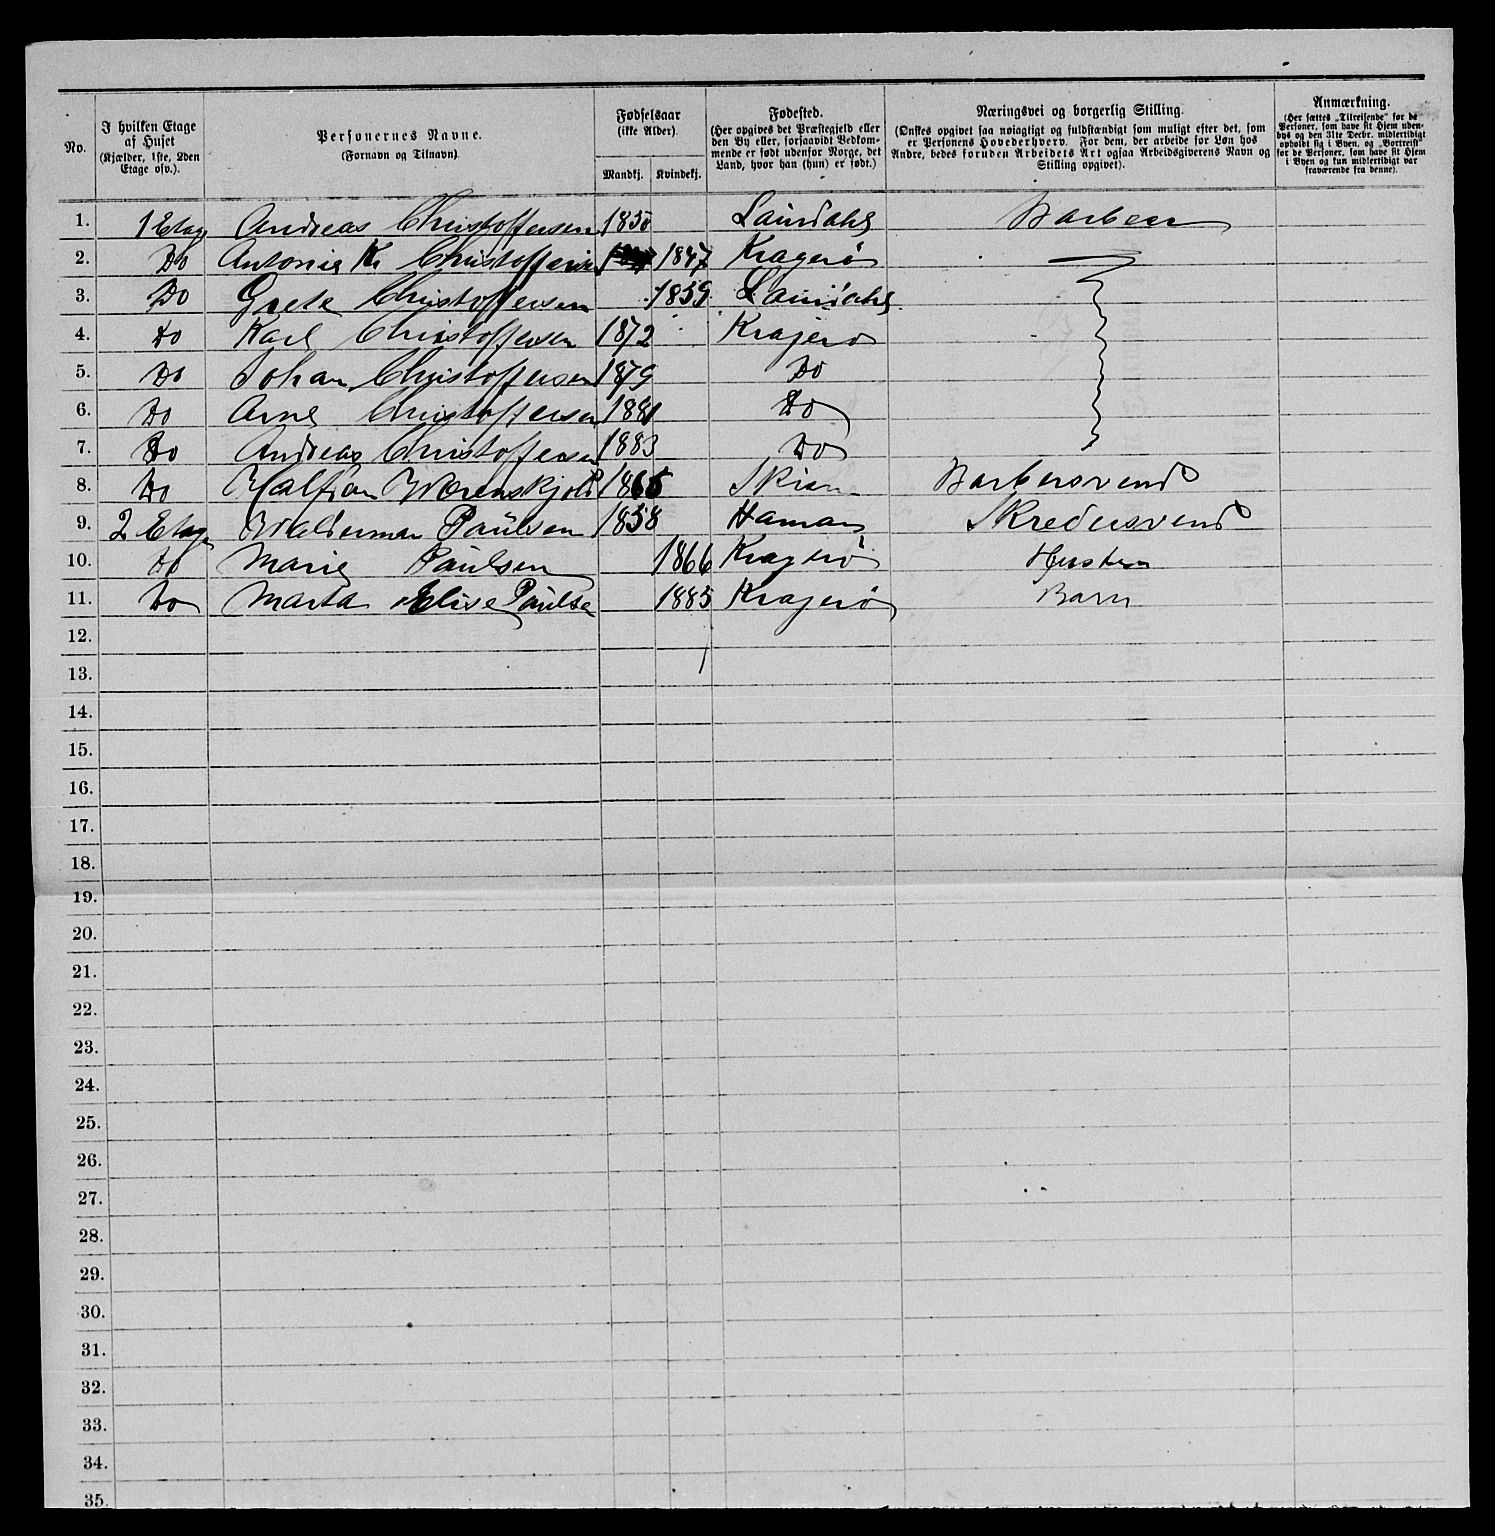 No.
I hvilken Etage af Huset (Kjælder, 1ste, 2den Etage osv.).
Personernes Navne. (Fornavn og Tilnavn)
Fødselsaar (ikke Alder)
Mandkj. Kvindekj.
Fødested. (Her opgives det Præstegjeld eller den By eller, forsaavidt Vedkommende er født udenfor Norge, det Land, hvor han (hun) er født.)
Næringsvei og borgerlig Stilling. (Ønskes opgivet saa nøiagtigt og fuldstændigt som muligt efter det, som er Personens Hovederhverv. For dem, der arbeide for Løn hos Andre, bedes foruden Arbeidets Art ogsaa Arbeidsgiverens Navn og Stilling opgivet).
Anmærkning. (Her sættes „Tilreisende" for de Personer, som have sit Hjem udenbys og den 31te Decbr. midlertidigt opholdt sig i Byen, og „Bortreist" for de Personer, som have sit Hjem i Byen og kun midlertidigt var fraværende fra denne).
1. 1 Etage Andreas Christoffersen 1850 Laurdahl Barbeer
2. Do Antonie K. Christoffersen 1847 Kragerø
3. Do Grete Christoffersen 1859 Laurdahl
4. Do Karl Christoffersen 1872 Krajerø
5. Do Johan Christoffersen 1879 Do
6. Do Arne Christoffersen 1881 Do
7. Do Andreas Christoffersen 1883 Do
8. Do Halfdan Wærenskjold 1865 Skien Barbersvend
9. 2 Etage Waldermar Paulsen 1858 Hamar Skredersvend
10. Do Marie Paulsen 1866 Kragerø Hustru
11. Do Marta Elise Paulse 1885 Krajerø Barn
12.
13.
14.
15.
16.
17.
18.
19.
20.
21.
22.
23.
24.
25.
26.
27.
28.
29.
30.
31.
32.
33.
34.
35.